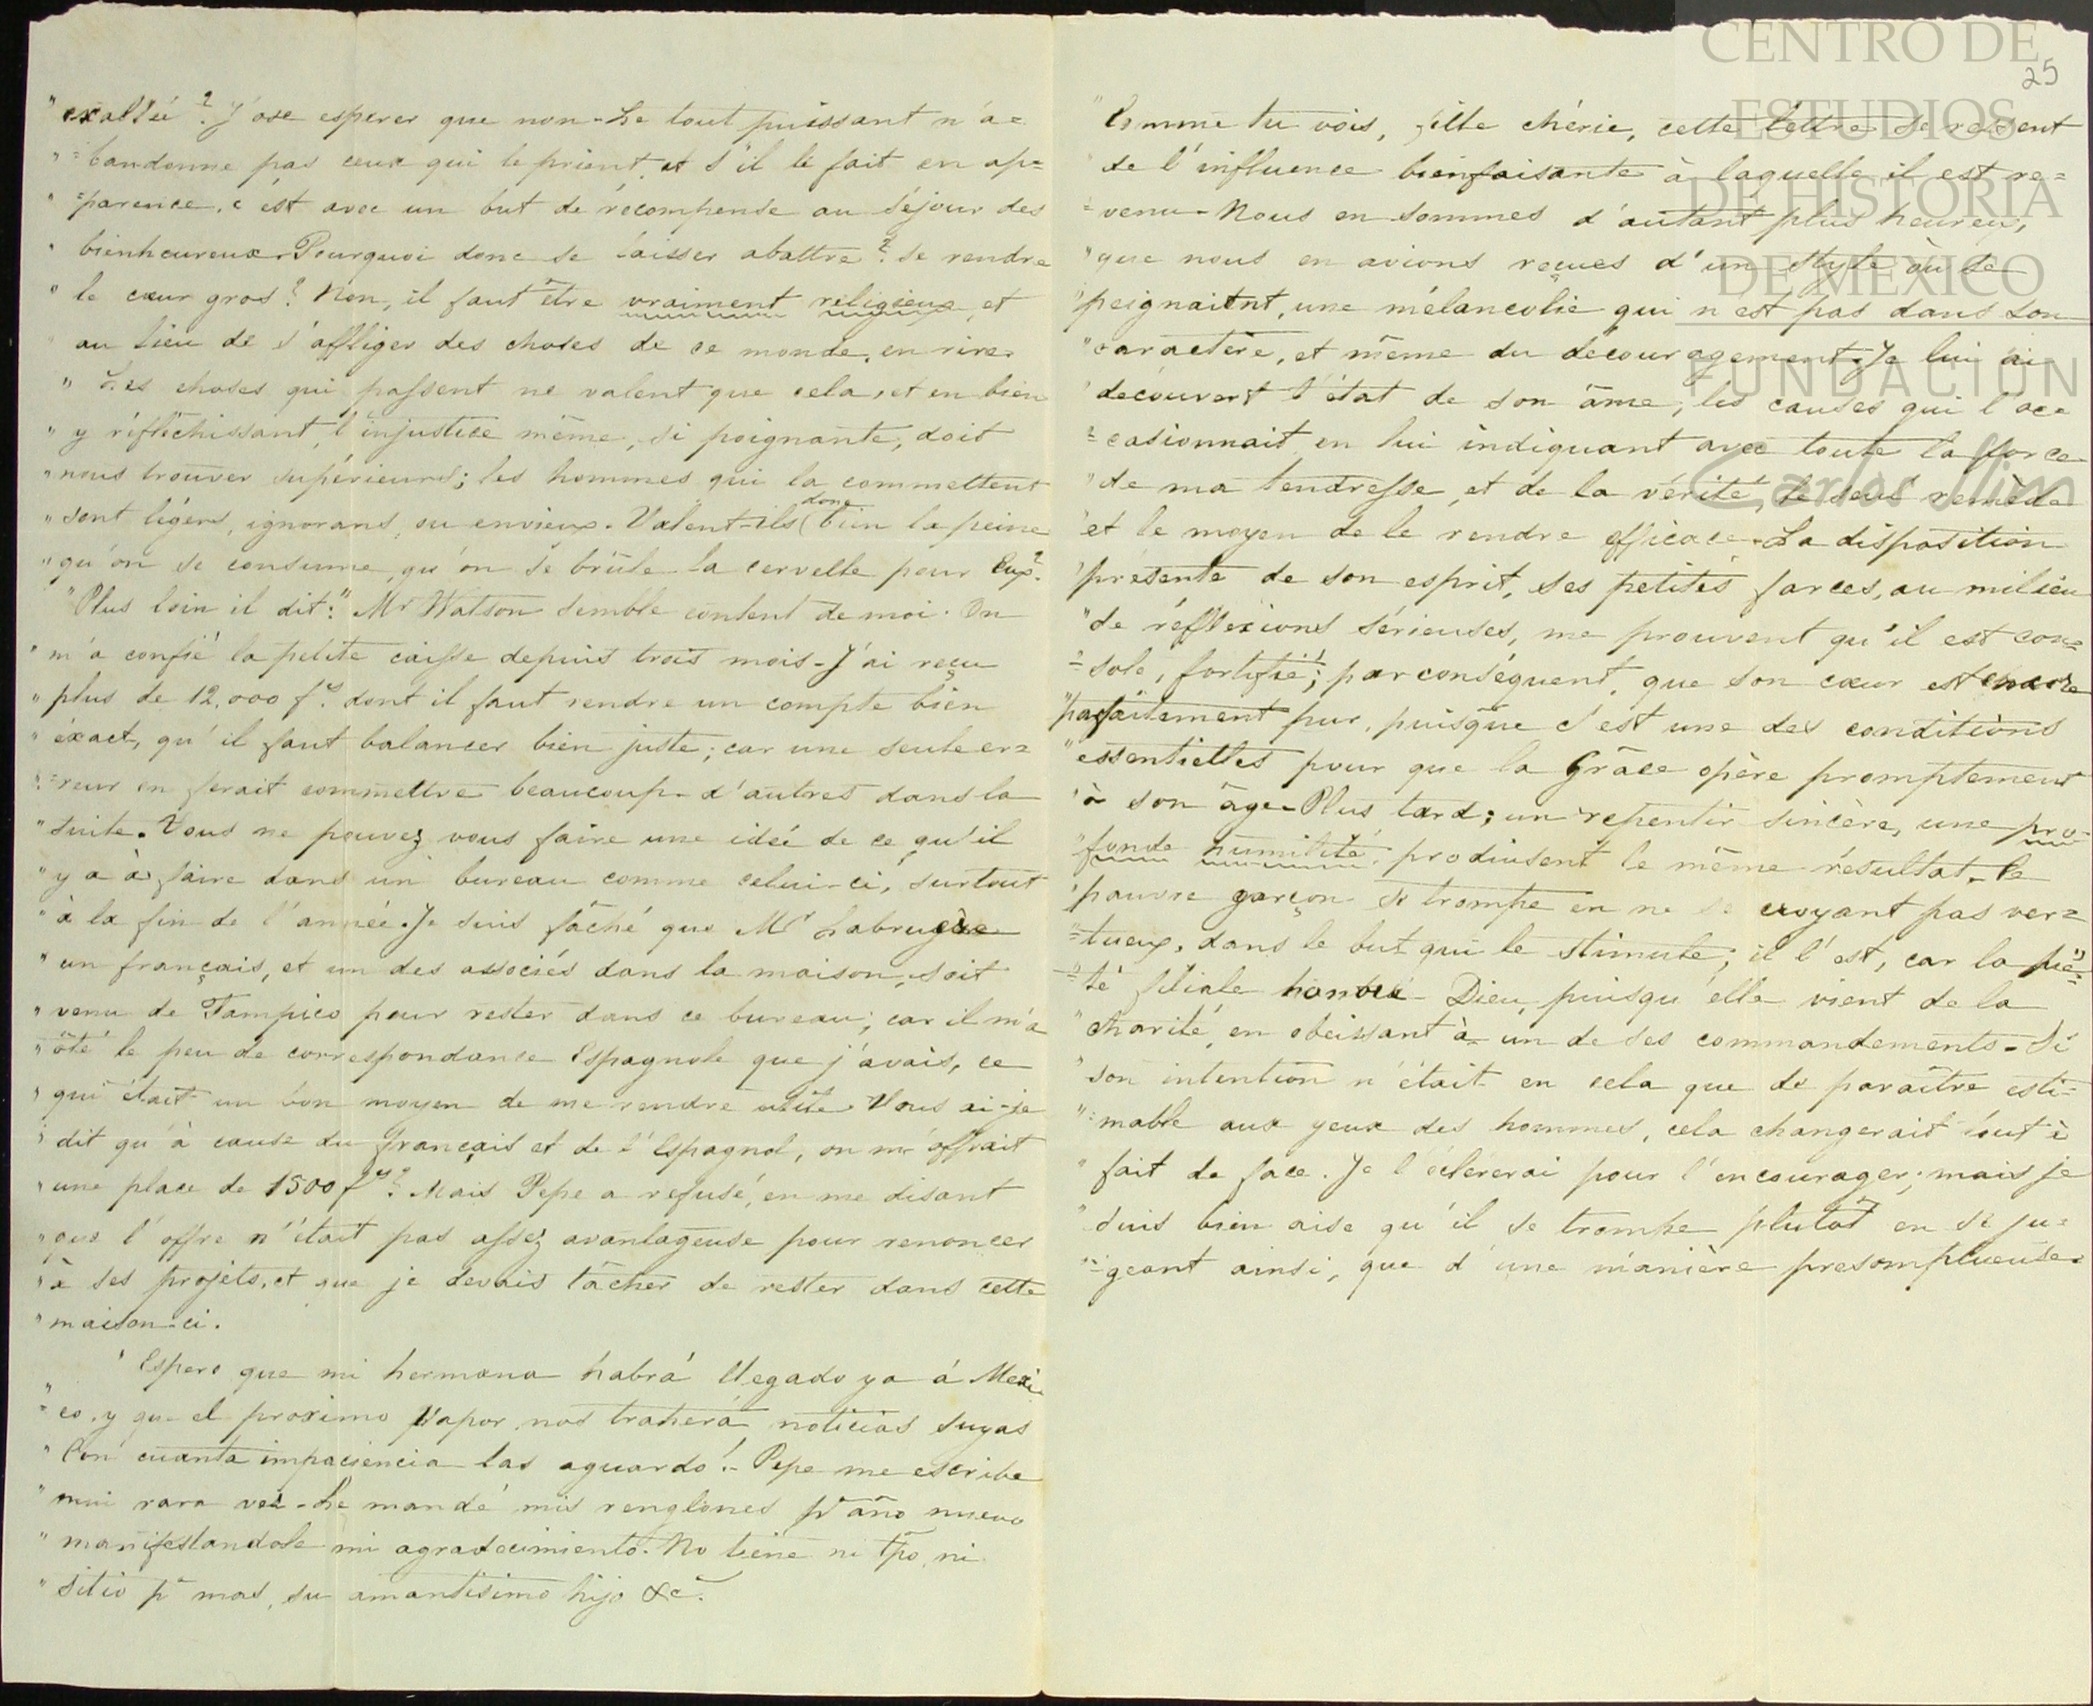 "exaltée? J'ose esperer que non - Le tout puissant n'a=
"=bandonne pas ceux qui le prient, et s'il le fait en ap=
"=parence, c'est avec un but de récompense au séjour des
"bienheureux - Pourquoi donc se laisser abattre? Se rendre
"le cœur gros? Non, il faut être vraiment religieux, et
"au lieu de s'affliger des choses de ce monde, en rire.
"Les choses qui passent ne valent que cela, et en bien
"y réfléchissant, l'injustice même, si poignante, doit
"nous trouver supérieurs; les hommes qui la commettent
"sont légers, ignorans, ou envieux. Valent-ils donc bien la peine
"qu'on se consume, qu'on se brûle la cervelle pour Eux?
"Plus loin il dit: "Mr Watson semble content de moi. On
"m'a confié la petite caisse depuis trois mois - J'ai reçu
"plus de 12,000 fs. dont il faut rendre un compte bien
"éxact, qu'il faut balancer bien juste; car une seule er=
"=reur en ferait commettre beaucoup d'autres dans la
"suite. Vous ne pouvez vous faire une idée de ce qu'il
"y a à faire dans un bureau comme celui-ci, surtout
"à la fin de l'année. Je suis fâché que Mr Labruyère
"un français, et un des associés dans la maison, soit
"venu de Tampico pour rester dans ce bureau; car il m'a
"ôté le peu de correspondance Espagnole que j'avais, ce
"qui était un bon moyen de me rendre utile. Vous ai-je
"dit qu'à cause du français et de l'Espagnol, on m'offrait
"une place de 1500 fs? Mais Pepe a refusé, en me disant
"que l'offre n'était pas assez avantageuse pour renoncer
"à ses projets, et que je devais tâcher de rester dans cette
"maison-ci.
"Espero que mi hermana habrá llegado ya á Mexi=
"=co, y que el proximo Vapor nos traherá noticias suyas
"Con cuanta impaciencia las aguardo! - Pepe me escribe
"mui rara vez - Le mandé mis renglones pr año nuevo
"manifestandole mi agradecimiento. No tiene ni tpo, ni
"sitio pa mas, su amantisimo hijo &c.
25
"Comme tu vois, fille chérie, cette lettre se ressent
"de l'influence bienfaisante à laquelle il est re=
"=venu - Nous en sommes d'autant plus heureux,
"que nous en avions reçues d'un style où se
"peignaient, une mélancolie qui n'est pas dans son
"caractère, et même du découragement. Je lui ai
"découvert l'état de son âme, les causes qui l'oc=
"=casionnait en lui indiquant avec toute la force
"de ma tendresse, et de la vérité, le seul remède
"et le moyen de le rendre efficace - La disposition
"présente de son esprit, ses petites farces, au milieu
"de réflexions sérieuses, me prouvent qu'il est con=
"=solé, fortifié; par conséquent, que son cœur est encore
"parfaitement pur, puisque c'est une des conditions
"essentielles pour que la Grâce opère promptement
"à son âge - Plus tard; un repentir sincère, une pro=
"fonde humilité, produisent le même résultat - Ce
"pauvre garçon se trompe en ne se croyant pas ver=
"=tueux, dans le but qui le stimule; il l'est, car la pié=
"=té filiale honore Dieu, puisqu'elle vient de la
"charité, en obeissant à un de ses commandements - Si
"son intention n'était en cela que de paraître esti=
"=mable aux yeux des hommes, cela changerait tout à
"fait de face. Je l'éclérerai pour l'encourager; mais je
"suis bien aise qu'il se trompe plutôt en se ju=
"=geant ainsi, que d'une manière presomptueuse.
CENTRO DE
ESTUDIOS
DE HISTORIA
DE MÉXICO
FUNDACIÓN
Carlos Slim